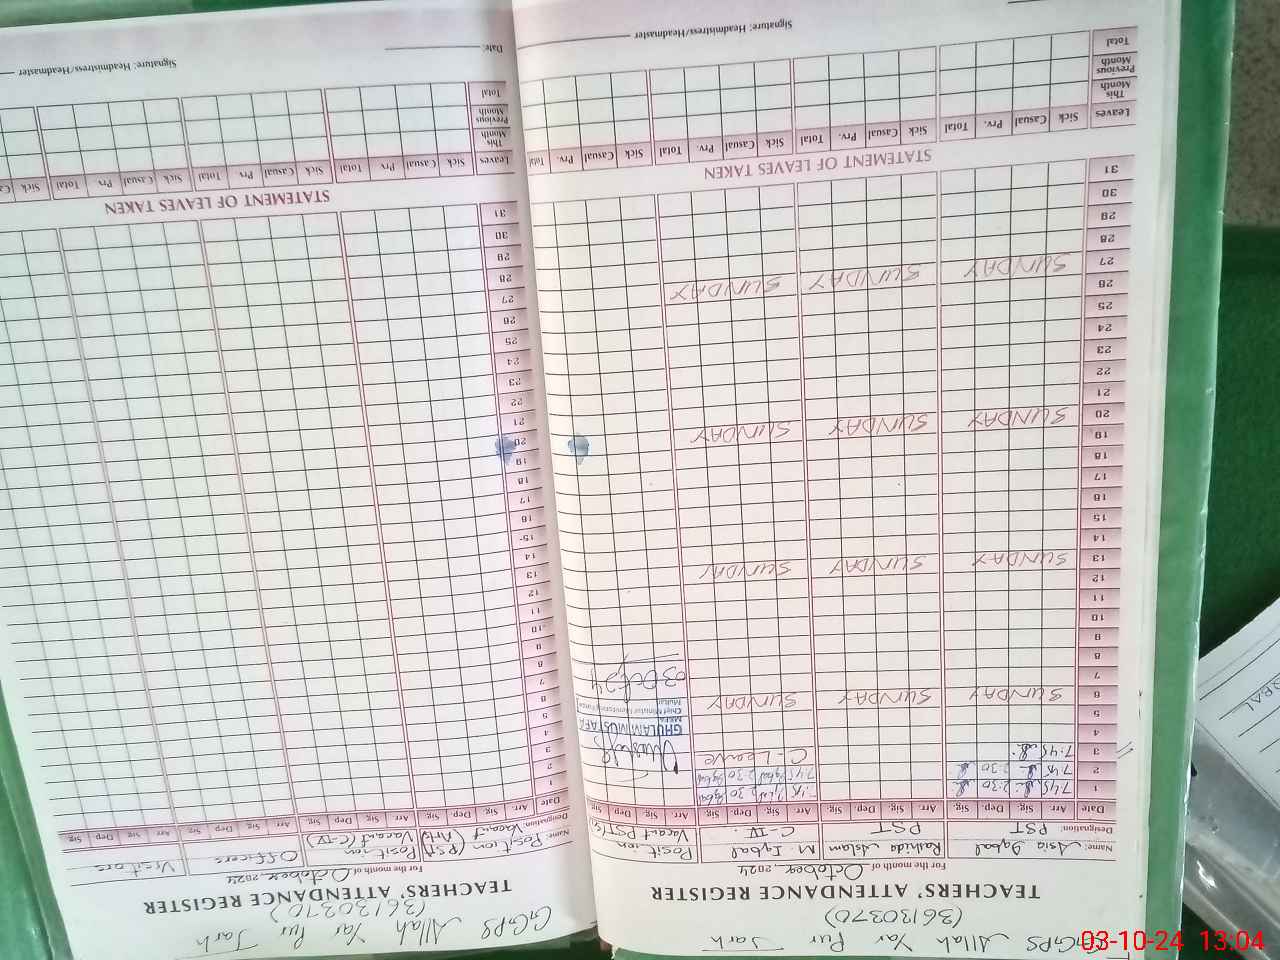 GGPS Allah Yar Pur Jarh
(36130370)
TEACHERS' ATTENDANCE REGISTER
For the month of October, 2024
Name: Asia Iqbal Rashida Aslam M. Iqbal Position
Designation: PST PST C-IV. Vacant PST(s)
Date Arr. Sig. Dep. Sig. Arr Sig. Dep. Sig. Arr Sig. Dep. Sig. Arr Sig. Dep Sig.
1 7:45 2:30 7:45 Iqbal 2:30 Iqbal
2 7:45 2:30 7:45 Iqbal 2:30 Iqbal
3 7:45 C-Leave
4
5
6 SUNDAY SUNDAY SUNDAY
7
8
9
10
11
12
13 SUNDAY SUNDAY SUNDAY
14
15
16
17
18
19
20 SUNDAY SUNDAY SUNDAY
21
22
23
24
25
26
27 SUNDAY SUNDAY SUNDAY
28
29
30
31
GHULAM MUSTAFA
MEA
Chief Minister Monitoring Force
Multan
03 Oct 24
STATEMENT OF LEAVES TAKEN
Leaves Sick Casual Prv. Total Sick Casual Prv. Total Sick Casual Prv. Total Sick Casual Prv. Total
This Month
Previous Month
Total
Signature: Headmistress/Headmaster
GGPS Allah Yar Pur Jarh
(36130370)
TEACHERS' ATTENDANCE REGISTER
For the month of October, 2024
Name: Position (PST Position Officers Visitors
Designation: Vacant (Arts) Vacant (C-IV)
Date Arr. Sig. Dep Sig. Arr Sig. Dep Sig. Arr Sig. Dep Sig. Arr Sig. Dep Sig.
1
2
3
4
5
6
7
8
9
10
11
12
13
14
15
16
17
18
19
20
21
22
23
24
25
26
27
28
29
30
31
STATEMENT OF LEAVES TAKEN
Leaves Sick Casual Prv Total Sick Casual Prv Total Sick Casual Prv Total Sick
This Month
Previous Month
Total
Date:
Signature: Headmistress/Headmaster
03-10-24 13:04